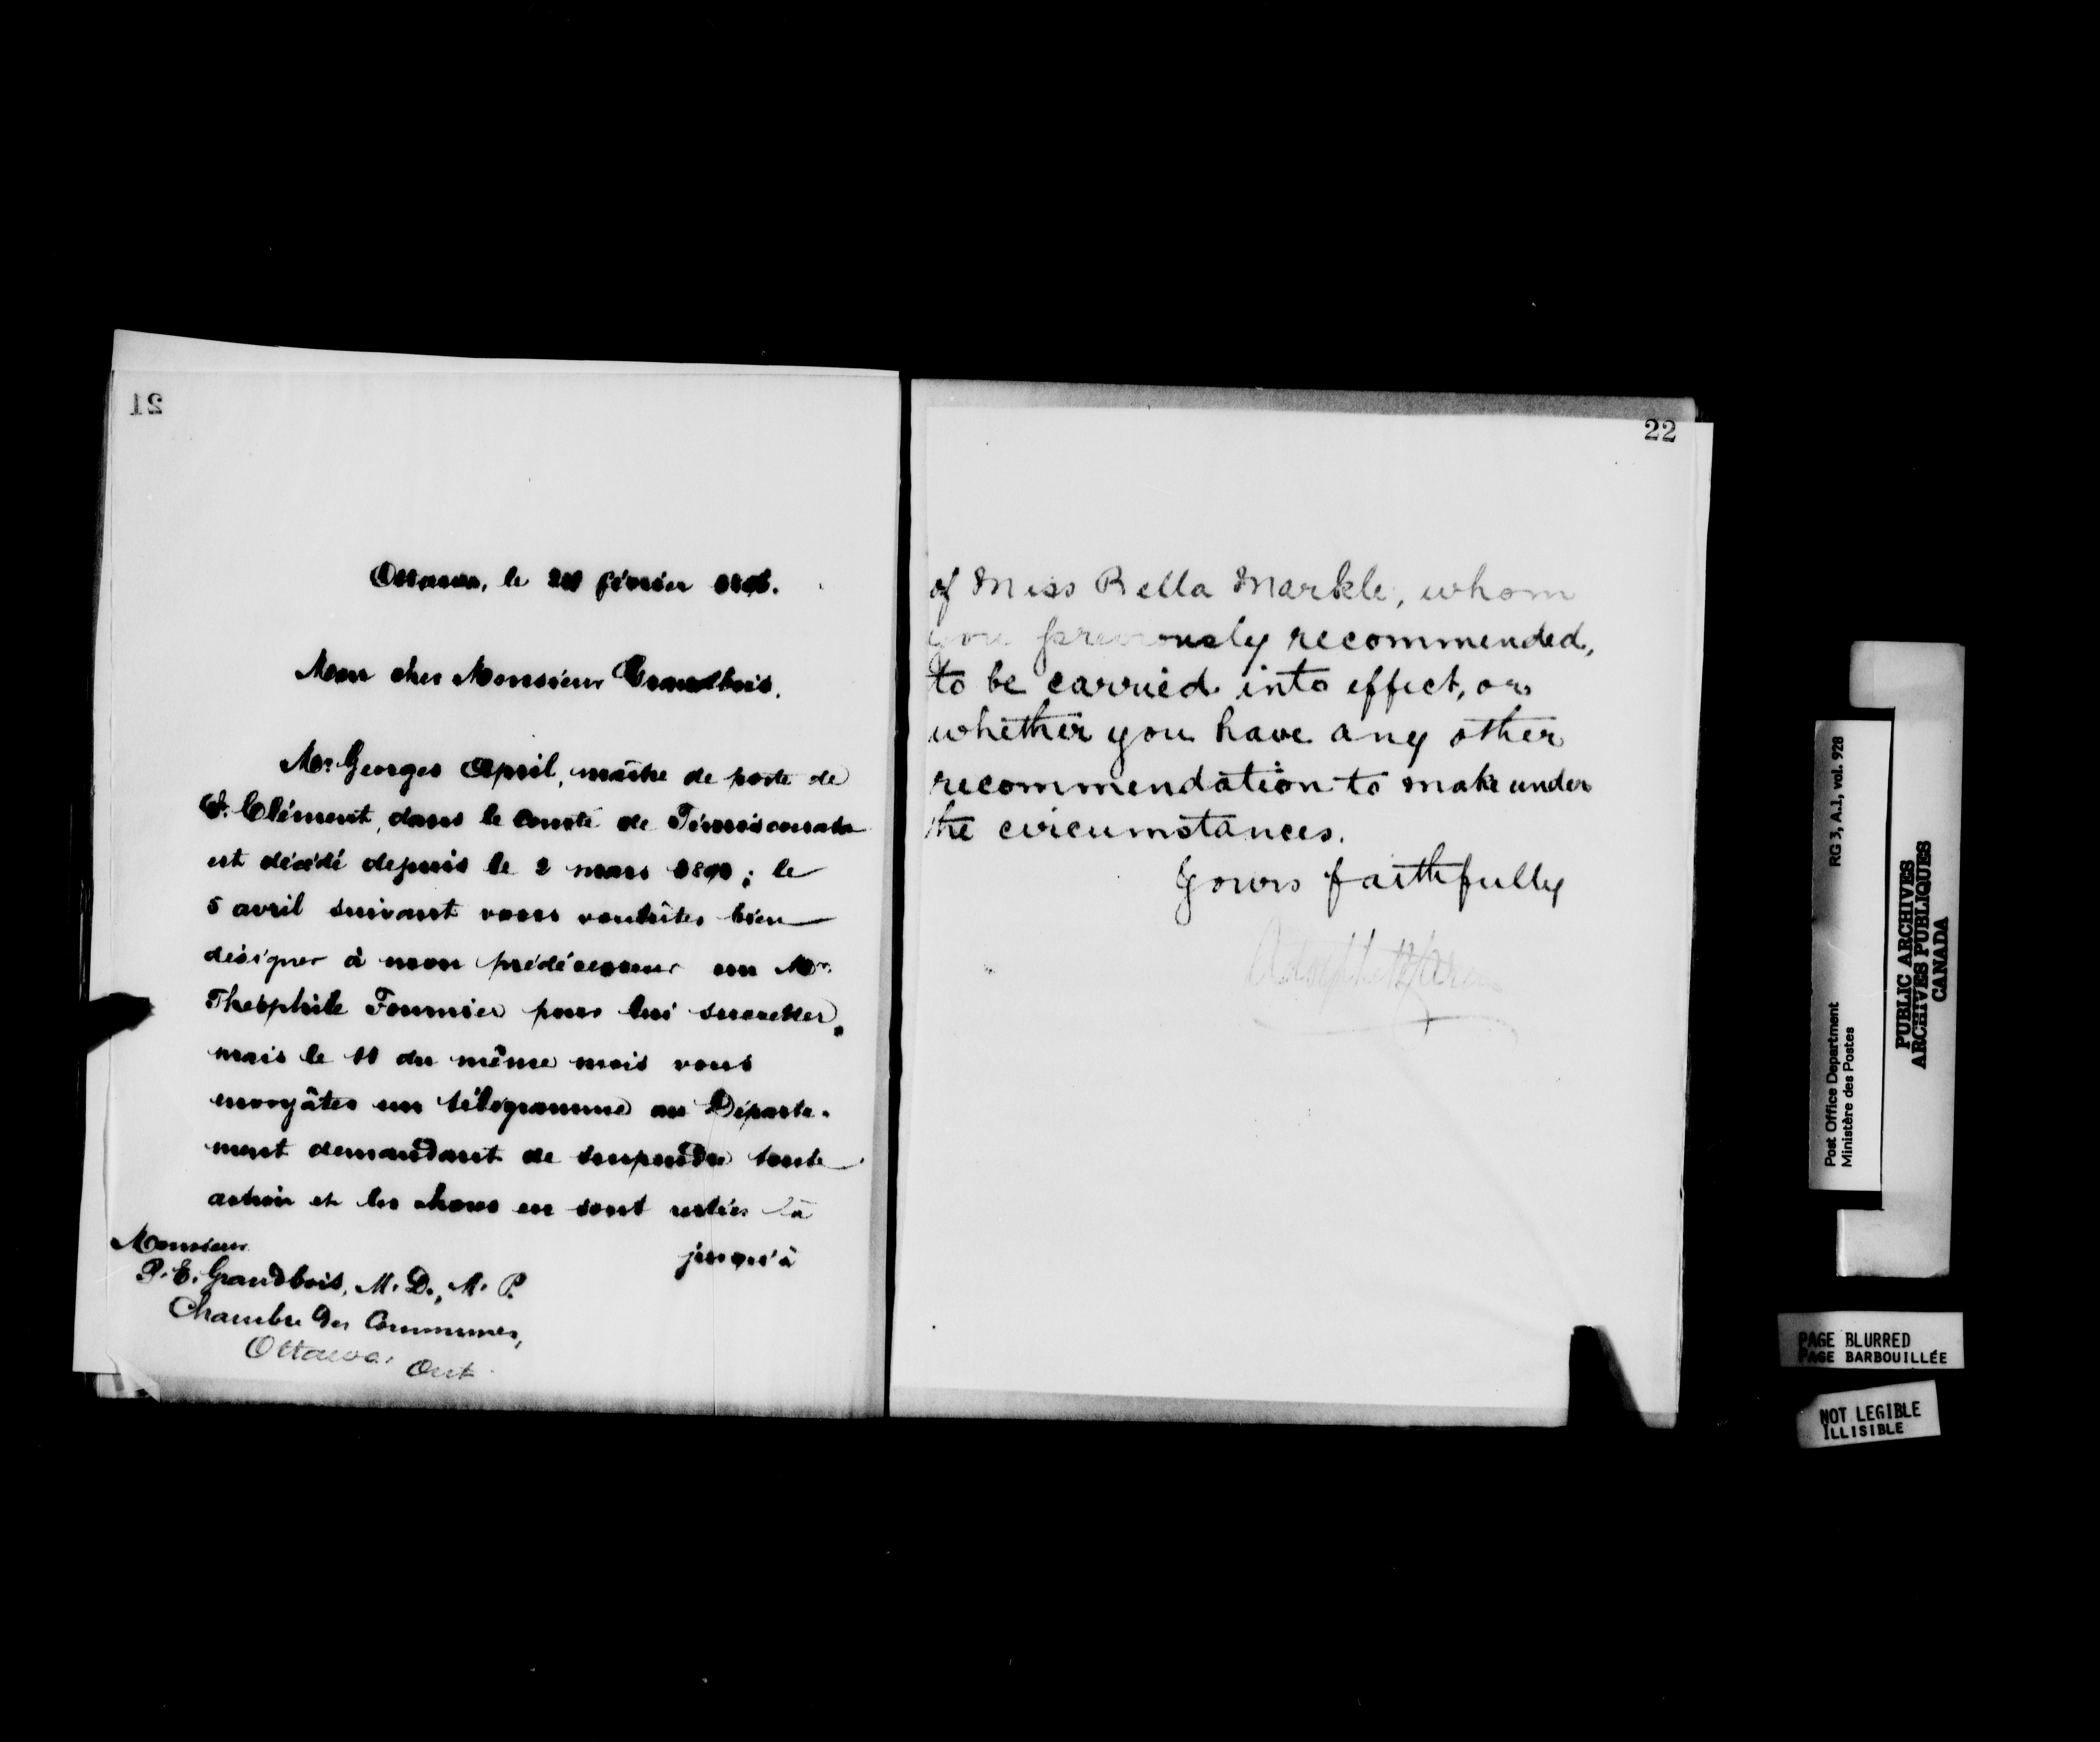 21
Ottawa, le février
Mon cher Monsieur Grandbois,
Mr Georges April, maître de poste de
St. Clément, dans le comté de Témiscouata
est décédé depuis le 2 mars ; le
5 avril suivant vous voulûtes bien
désigner à mon prédécesseur un Mr.
Théophile Fournier pour lui succéder,
mais le 11 du même mois vous
envoyâtes un télégramme au Départe-
ment demandant de suspendre toute
action et les choses en sont restées là
jusqu'à
Monsieur
P. E. Grandbois, M. D., M. P.
Chambre des Communes,
Ottawa, Ont.
22
of Miss Bella Markle, whom
you previously recommended,
to be carried into effect, or
whether you have any other
recommendation to make under
the circumstances.
Yours faithfully
Adolphe P. Caron
RG 3, A.1, vol. 928
Post Office Department
Ministère des Postes
PUBLIC ARCHIVES
ARCHIVES PUBLIQUES
CANADA
PAGE BLURRED
PAGE BARBOUILLÉE
NOT LEGIBLE
ILLISIBLE